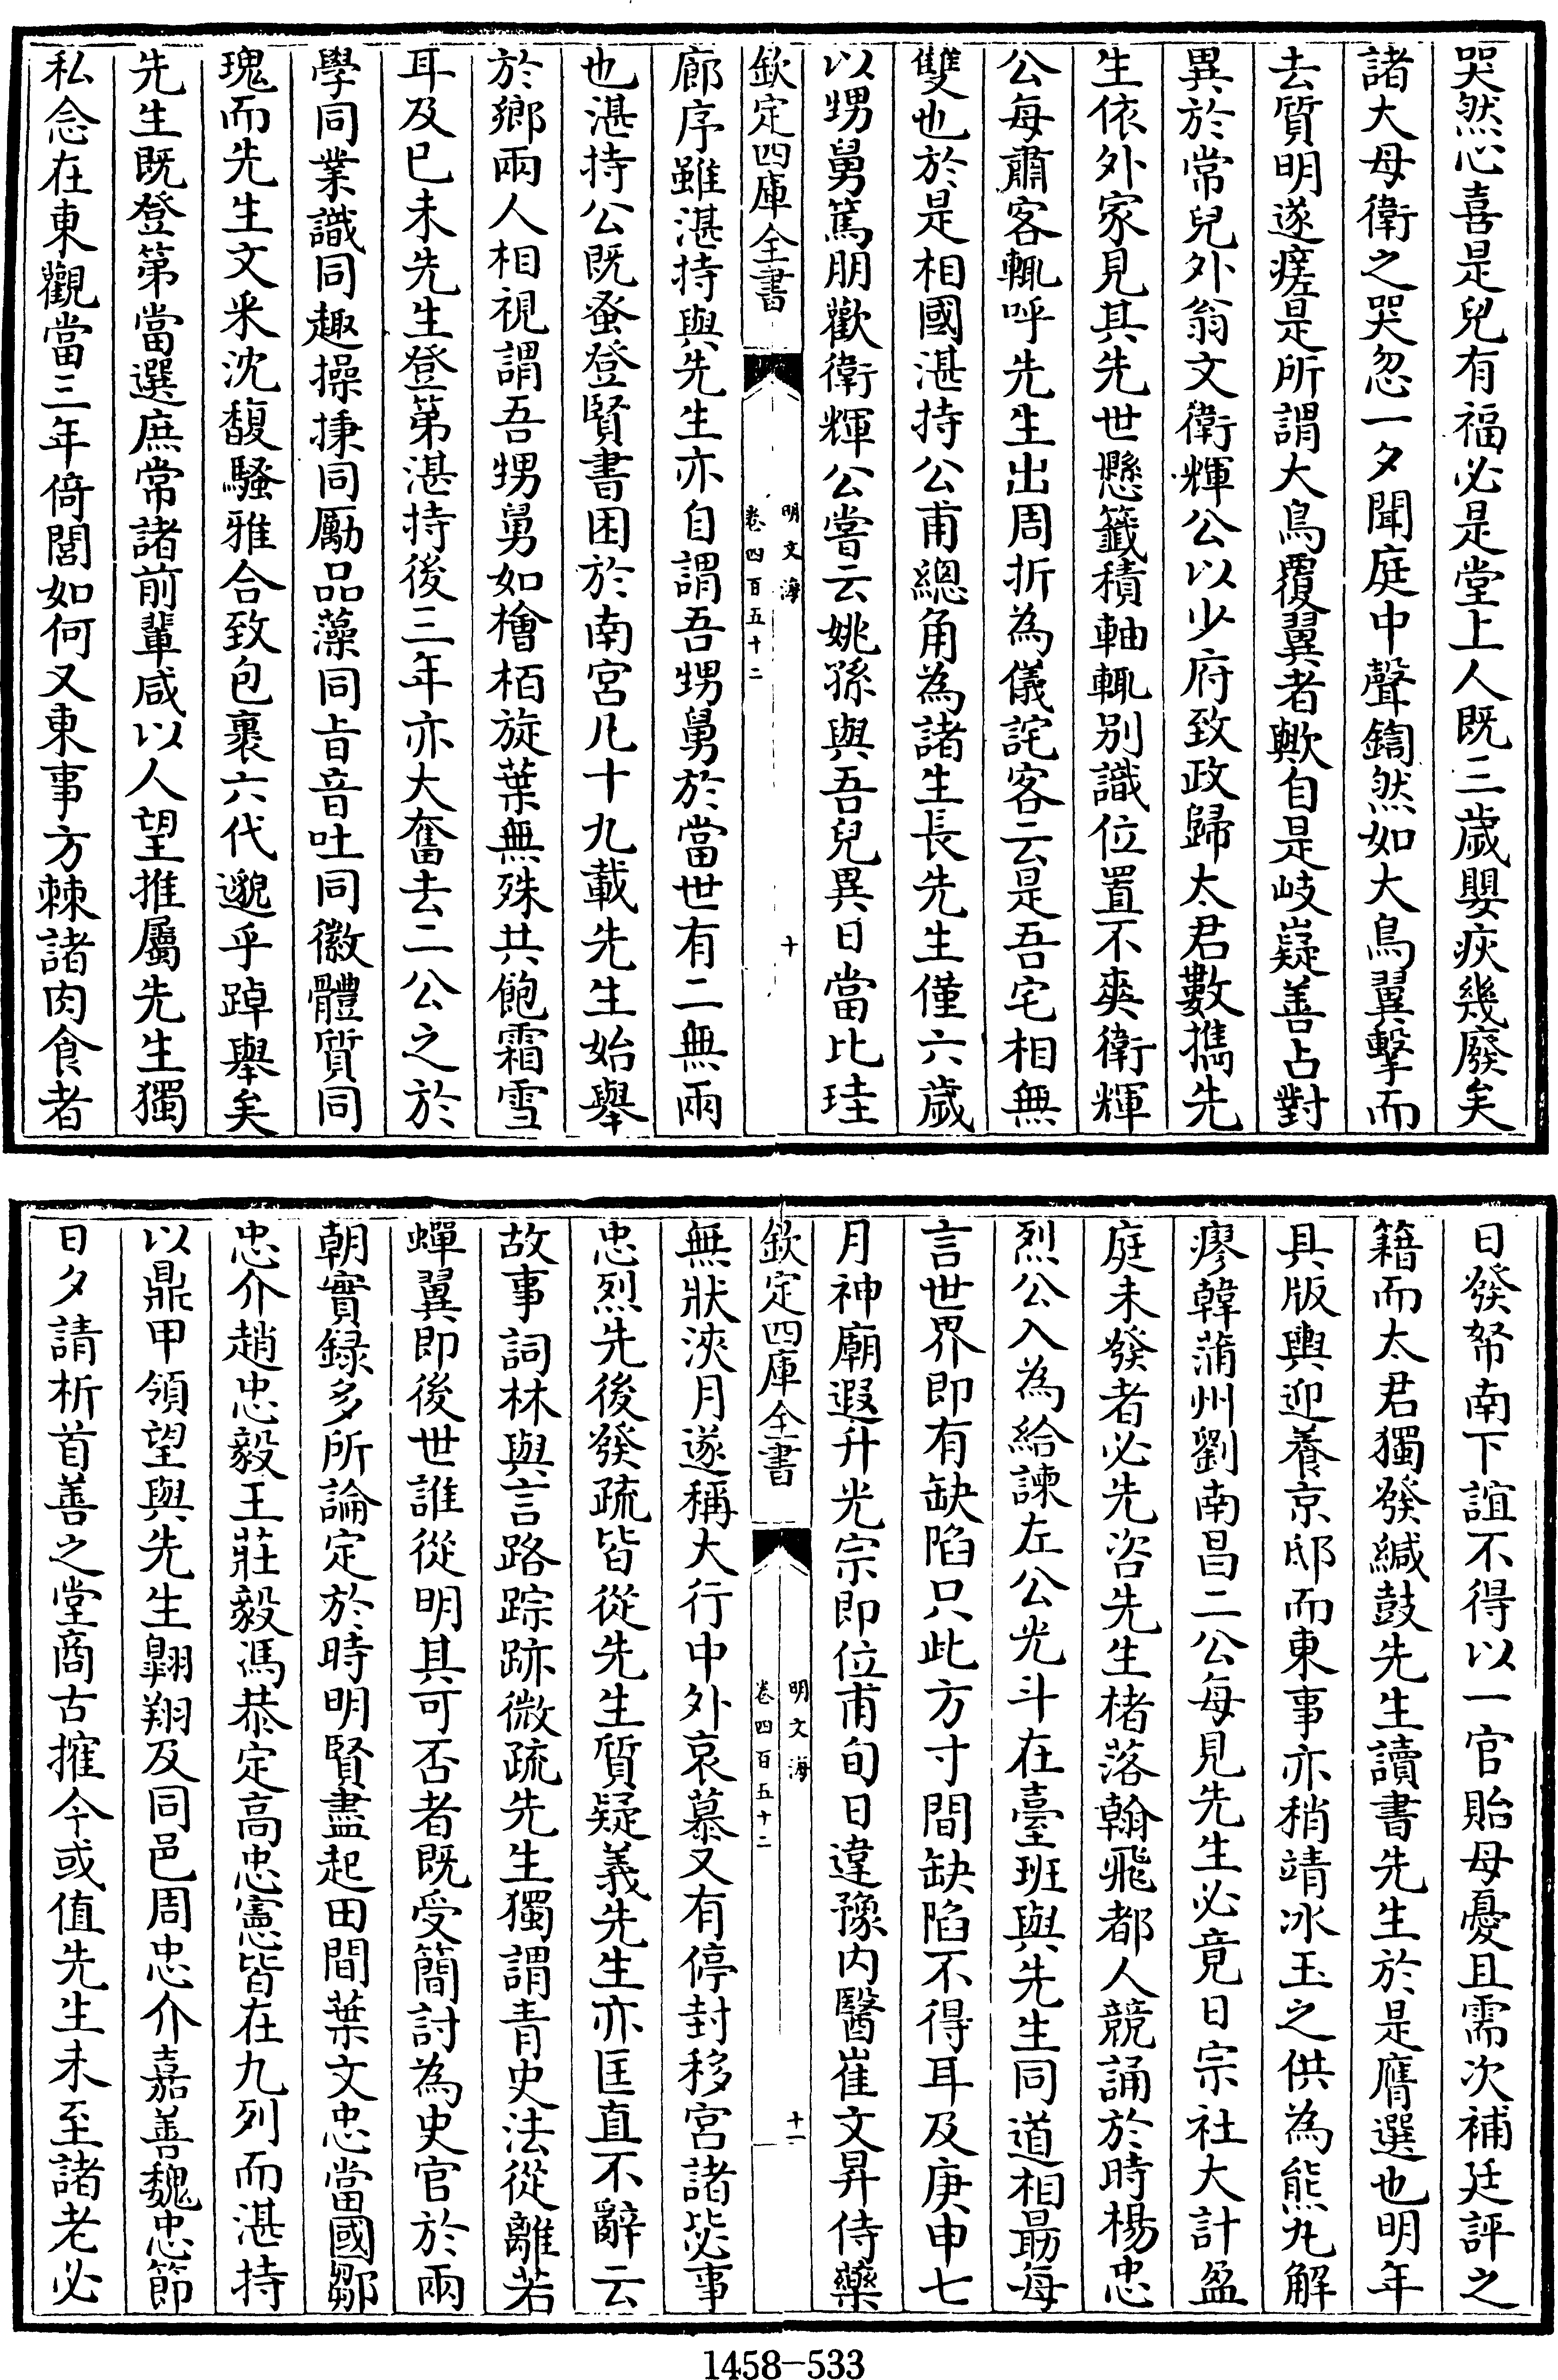 哭然心喜是兒有福必是堂上人既三歲嬰疾幾廢矣
諸大母衛之哭忽一夕聞庭中聲鍧然如大鳥翼擊而
去質明遂瘥是所謂大鳥覆翼者歟自是岐嶷善占對
異於常兒外翁文衛輝公以少府致政歸太君數攜先
生依外家見其先世懸籤積軸輒別識位置不爽衛輝
公每肅客輒呼先生出周折為儀詫客云是吾宅相無
雙也於是相國湛持公甫總角為諸生長先生僅六歲
以甥舅篤朋歡衛輝公嘗云姚孫與吾兒異日當比珪
欽定四庫全書
明文海
卷四百五十二
十
廊序雖湛持與先生亦自謂吾甥舅於當世有二無兩
也湛持公既蚤登賢書困於南宮凡十九載先生始舉
於鄉兩人相視謂吾甥舅如檜栢旋葉無殊共飽霜雪
耳及已未先生登第湛持後三年亦大奮去二公之於
學同業識同趣操秉同勵品藻同旨音吐同徽體質同
瑰而先生文采沈馥騷雅合致包裹六代邈乎踔舉矣
先生既登第當選庶常諸前輩咸以人望推屬先生獨
私念在東觀當三年倚閭如何又東事方棘諸肉食者
日發帑南下誼不得以一官貽母憂且需次補廷評之
籍而太君獨發緘鼓先生讀書先生於是膺選也明年
具版輿迎養京邸而東事亦稍靖冰玉之供為熊丸解
瘳韓蒲州劉南昌二公每見先生必竟日宗社大計盈
庭未發者必先咨先生楮落翰飛都人競誦於時楊忠
烈公入為給諫左公光斗在臺班與先生同道相朂每
言世界即有缺陷只此方寸間缺陷不得耳及庚申七
月神廟遐升光宗即位甫旬日違豫內醫崔文昇侍藥
欽定四庫全書
明文海
卷四百五十二
十一
無狀浹月遂稱大行中外哀慕又有停封移宮諸毖事
忠烈先後發疏皆從先生質疑義先生亦匡直不辭云
故事詞林與言路踪跡微疏先生獨謂青史法從離若
蟬翼即後世誰從明其可否者既受簡討為史官於兩
朝實録多所論定於時明賢盡起田間葉文忠當國鄒
忠介趙忠毅王莊毅馮恭定高忠憲皆在九列而湛持
以鼎甲領望與先生翱翔及同邑周忠介嘉善魏忠節
日夕請析首善之堂商古搉今或值先生未至諸老必
1458-533